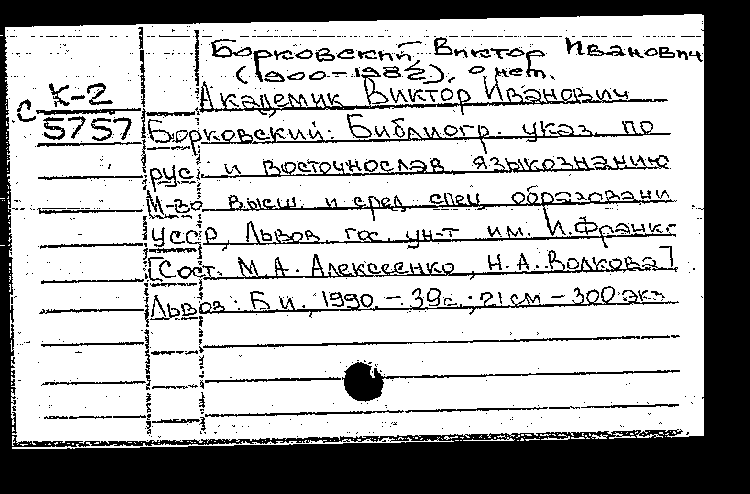 Борковский, Виктор Иванович
(1900-1982), о нем.
С К-2 Академик Виктор Иванович
5757 Борковский: Библиогр. указ. по
рус. и восточнослав языкознанию
М-во высш. и сред спец образовани
УССР, Львов. гос. ун-т им. И.Франко
[Сост. М.А. Алексеенко, Н.А. Волкова]
Львов: Б.и., 1990. - 39с.; 21 см - 300 экз